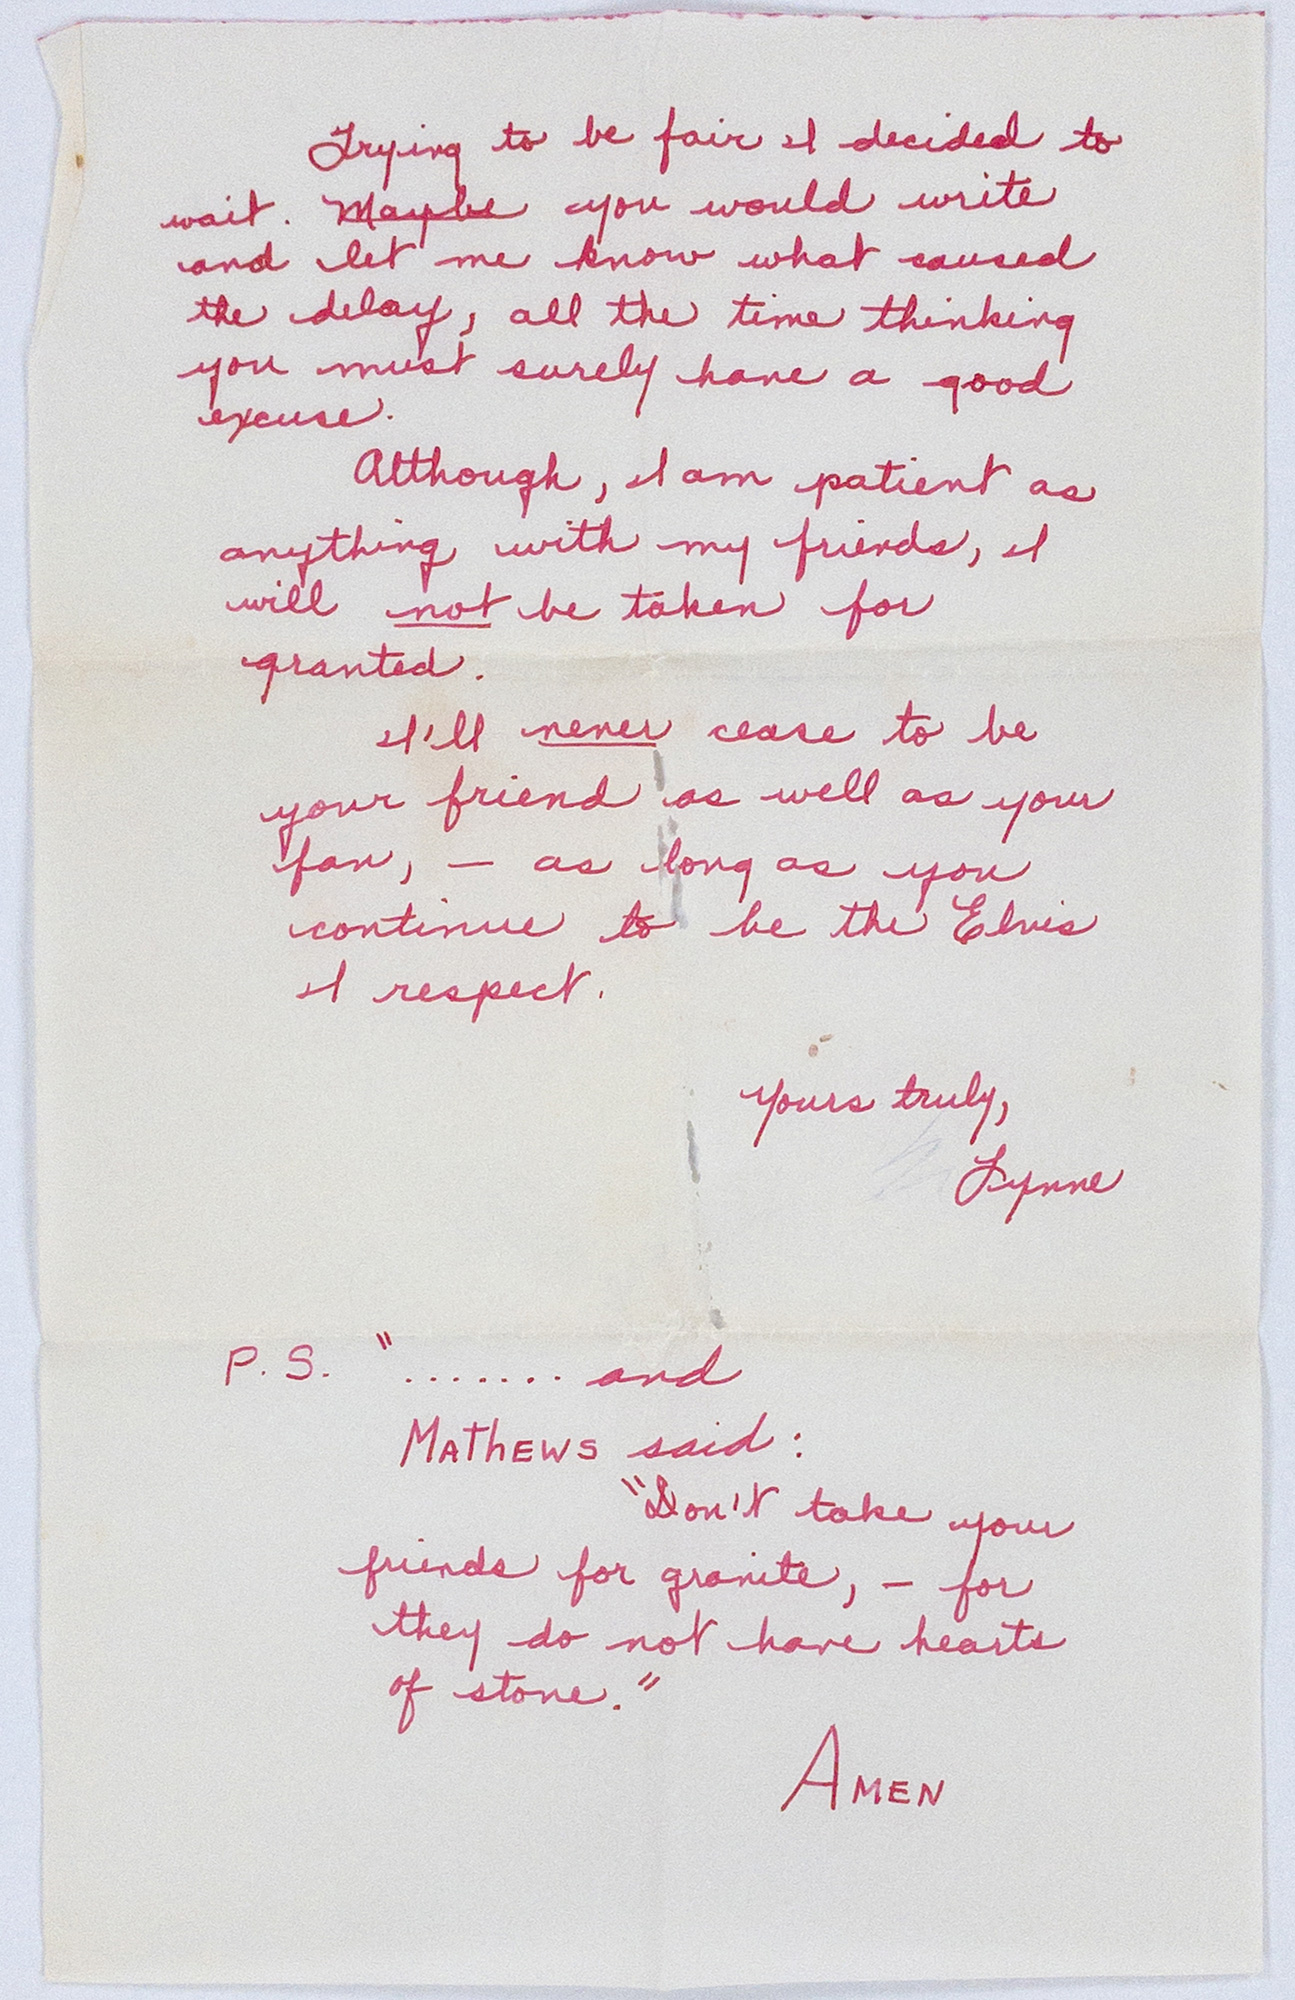 Trying to be fair I decided to
wait. Maybe you would write
and let me know what caused
the delay, all the time thinking
you must surely have a good
excuse.
Although, I am patient as
anything with my friends, I
will not be taken for
granted.
I'll never cease to be
your friend as well as your
fan, — as long as you
continue to be the Elvis
I respect.
Yours truly,
Lynne
P.S. "....... and
MATHEWS said:
"Don't take your
friends for granite, — for
they do not have hearts
of stone."
AMEN